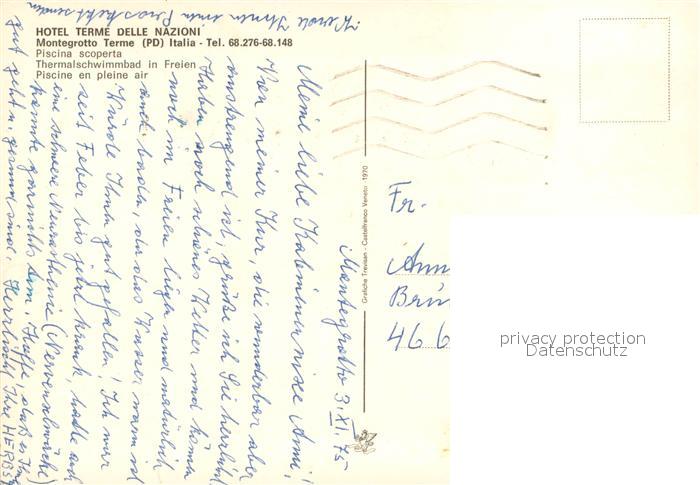 HOTEL TERME DELLE NAZIONI
Montegrotto Terme (PD) Italia - Tel. 68.276-68.148
Piscina scoperta
Thermalschwimmbad in Freien
Piscine en pleine air
Grafiche Trevisan - Castelfranco Veneto - 1970
Montegrotto 3.XI.75
Meine liebe Anni!
Von meiner Kur, die wunderbar aber
anstrengend ist, grüße ich Sie herzlichst
Haben noch schönes Wetter und können
noch im Freien liegen und natürlich
auch baden, da das Wasser warm ist
Würde Ihnen gut gefallen! Ich war
seit Feber bis jetzt krank, hatte auch
eine schwere Neurasthenie (Nervenschwäche)
konnte garnichts tun. Hoffe, daß es Ihnen
gut geht u. gesund sind. Herzlichst Ihre
Werde Ihnen einen Prospekt senden
Fr.
Brün
46 6
privacy protection
Datenschutz